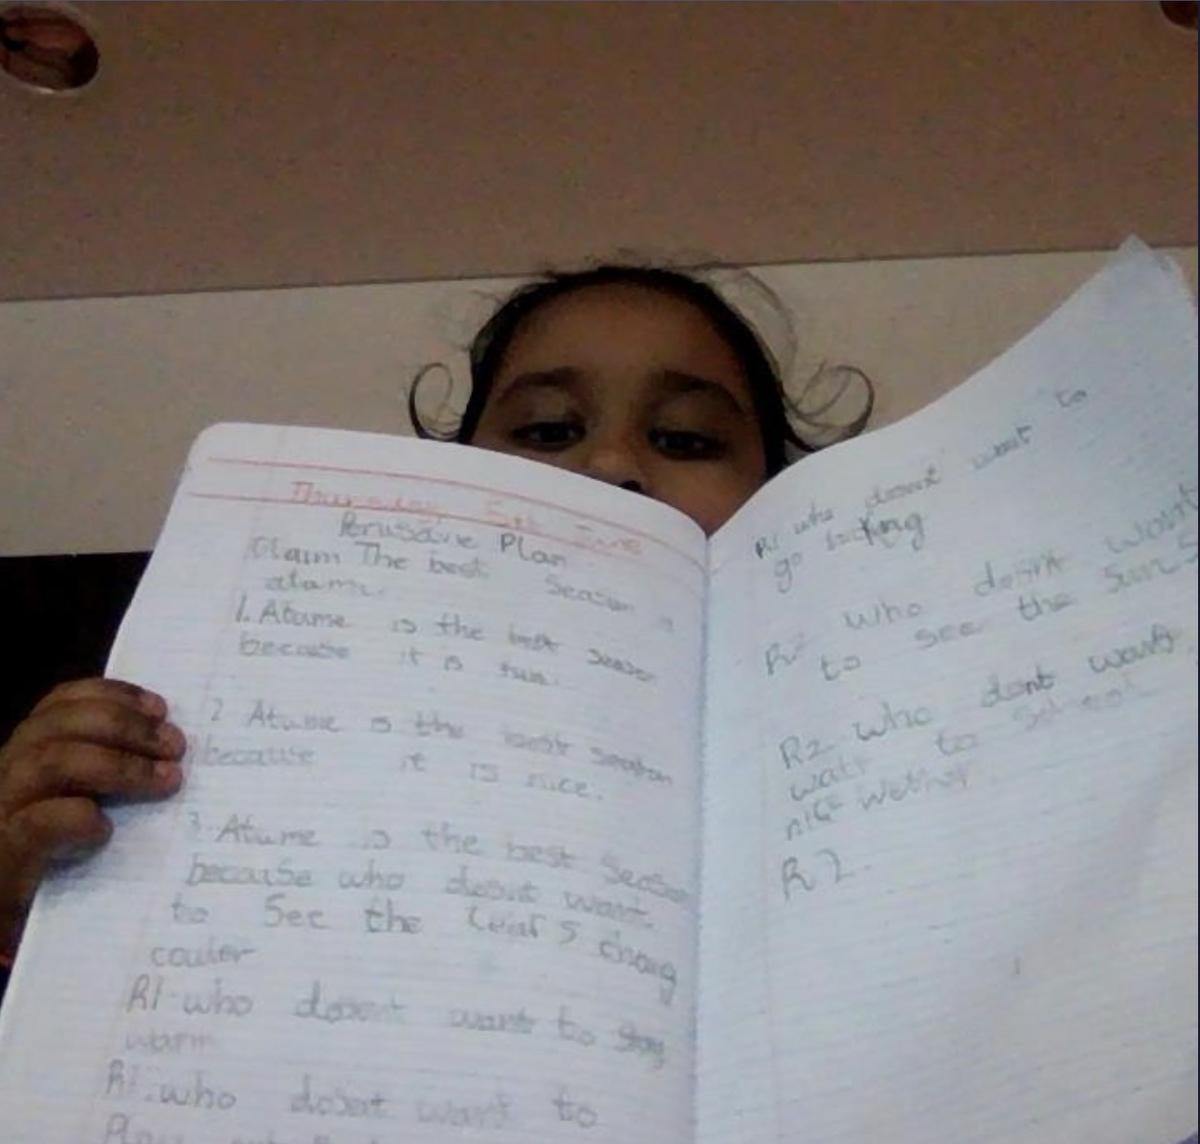 Thursday 5th June
Perusave Plan
Claim The best Season is
atame.
1. Atume is the best season
because it is fun.
2 Atume is the best season
because it is nice.
3. Atume is the best Season
because who dosnt want
to See the Leaf s chang
couler
R1 who dosent want to stay
warm
R1. who dosent want to
Play
R1 who dosent want to
go
R2 who dosnt want
to see the
R2 who dont want
to School
R2.